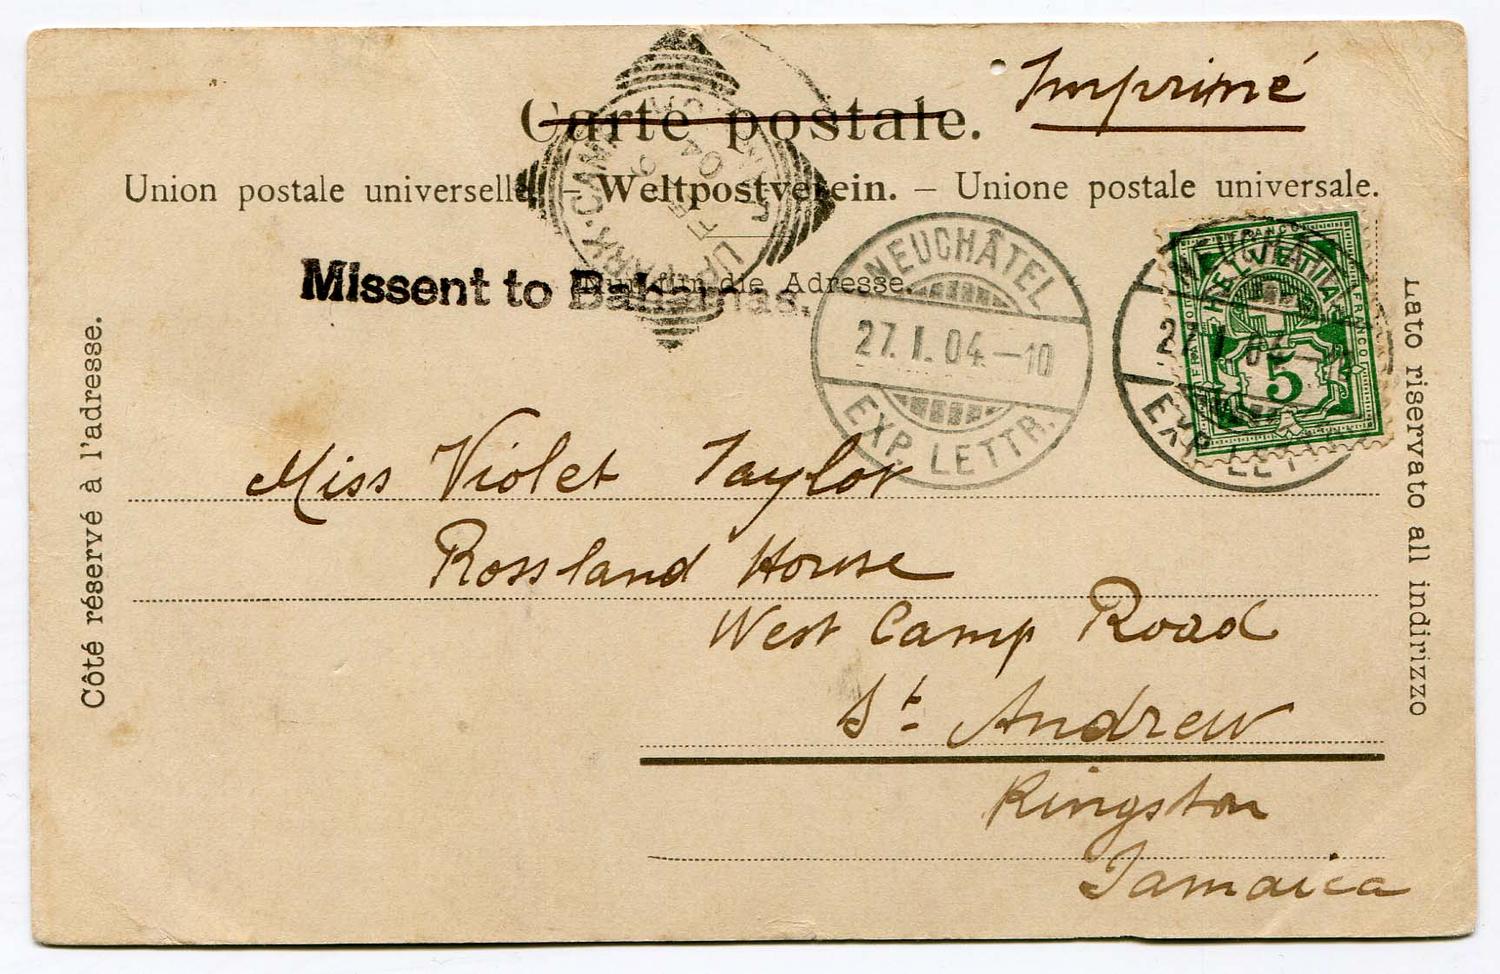 Imprimé
Carte postale.
Union postale universelle. – Weltpostverein. – Unione postale universale.
Missent to Bahamas.
Nur für die Adresse.
Côté réservé à l'adresse.
Lato riservato all indirizzo
NEUCHÂTEL
27. I. 04.–10
EXP. LETTR.
NEUCHÂTEL
27. I. 04–
EXP. LETTR.
FRANCO
HELVETIA
FRANCO
5
UP-PARK-CAMP
FE
04
Miss Violet Taylor
Rossland House
West Camp Road
St. Andrew
Kingston
Jamaica